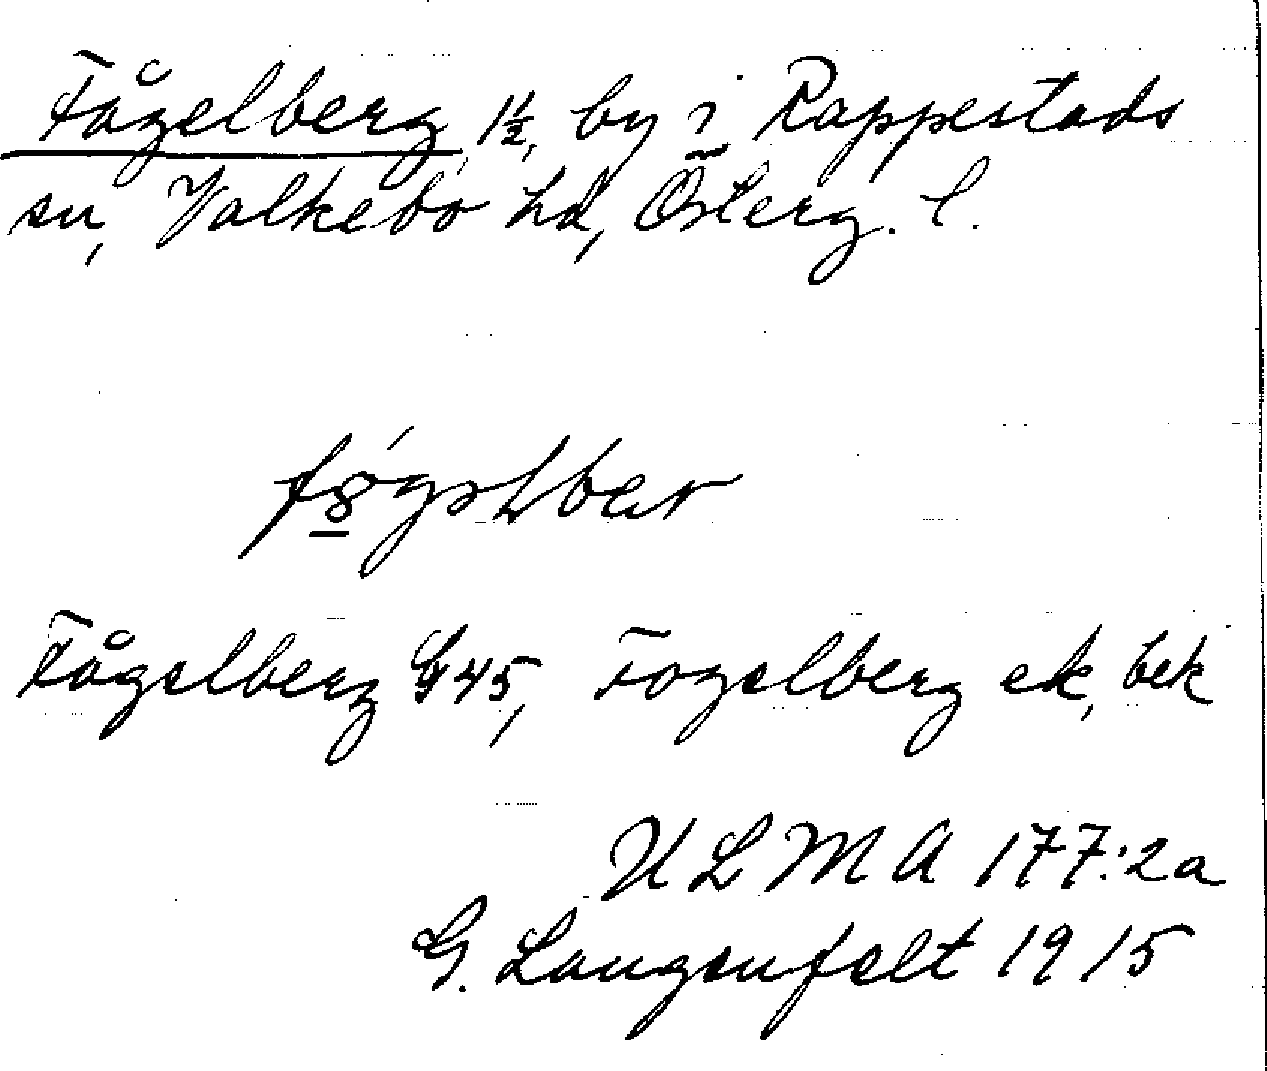 Fågelberg, 1½, by i Rappestads
sn, Valkebo hd, Österg. l.
Fågelberg G 45, Fogelberg ek, bek
ULMA 177:2a
G. Langenfelt 1915